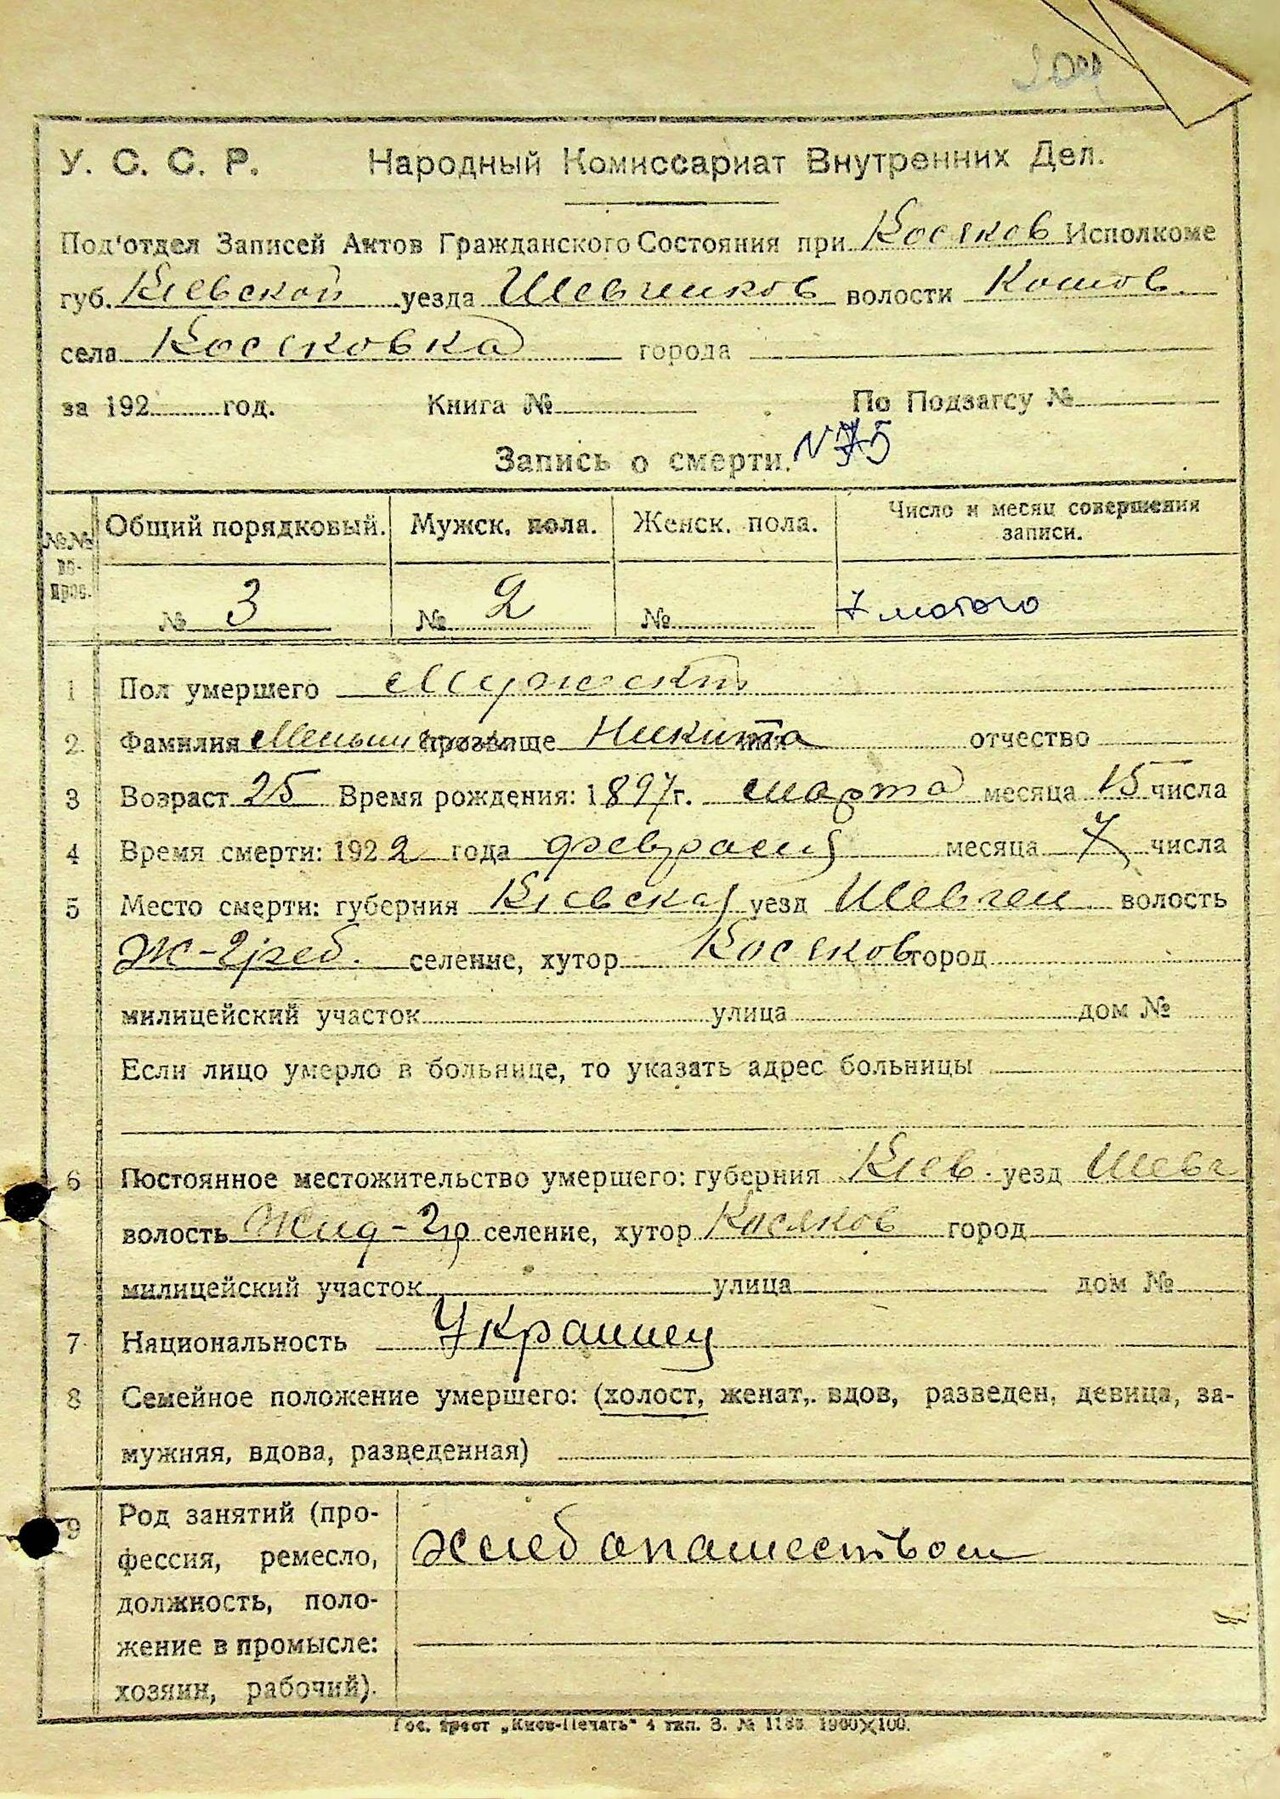 204
У. С. С. Р. Народный Комиссариат Внутренних Дел.
Под'отдел Записей Актов Гражданского Состояния при Косяков Исполкоме
губ. Кіевской уезда Шевченков волости Кошов.
села Косяковка города
за 192 год. Книга № По Подзагсу №
Запись о смерти. №
№№ во-прос. Общий порядковый. Мужск. пола. Женск. пола. Число и месяц совершения записи.
№ 3 № 2 № 7 лютого
1 Пол умершего Мужскій
2 Фамилия прозвище Никита имя отчество
3 Возраст 25 Время рождения: 1897г. марта месяца 15 числа
4 Время смерти: 1922 года февраля месяца 7 числа
5 Место смерти: губерния Кіевская уезд Шевчен. волость
Ж-Греб. селение, хутор Косяков город
милицейский участок улица дом №
Если лицо умерло в больнице, то указать адрес больницы
6 Постоянное местожительство умершего: губерния Кіев. уезд Шевч
волость Жид-Гр селение, хутор Косяков город
милицейский участок улица дом №
7 Национальность Украинец
8 Семейное положение умершего: (холост, женат, вдов, разведен, девица, за-
мужняя, вдова, разведенная)
9 Род занятий (про-
фессия, ремесло, хлебопашеством
должность, поло-
жение в промысле:
хозяин, рабочий).
Гос. трест „Киев-Печать" 4 тип. З. № 1160 1900×100.